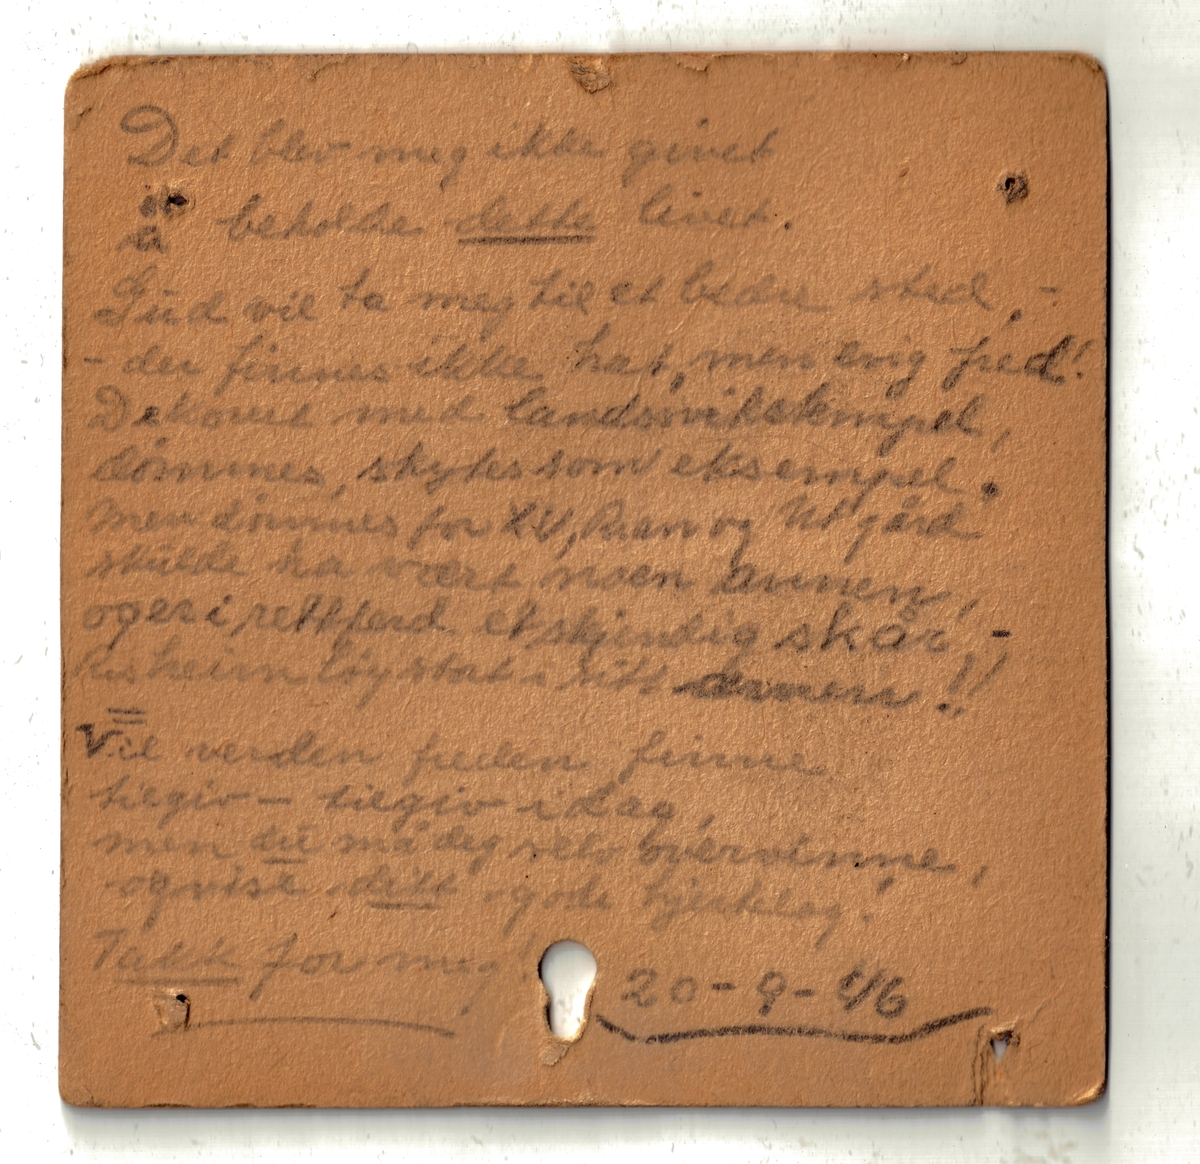 Det blev meg ikke givet
å beholde dette livet.
Gud vil ta meg til et bedre sted, -
- der finnes ikke hat, men evig fred!
De kome med landssvikstempel,
dømmes, skytes som eksempel.
men dømmes for XU, og Utgård
skulde ha vært noen annen,
og er i rettferd et skjendig skår, -
løy stat i !!
Vil verden freden finne
tilgiv - tilgiv i dag,
men du må deg selv overvinne,
og vise ditt gode hjertelag.
Takk for meg!
20 - 9 - 46